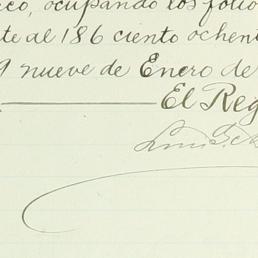 co, ocupando los folio
te al 186 ciento ochen
9 nueve de Enero de
El Reg
Luis G.